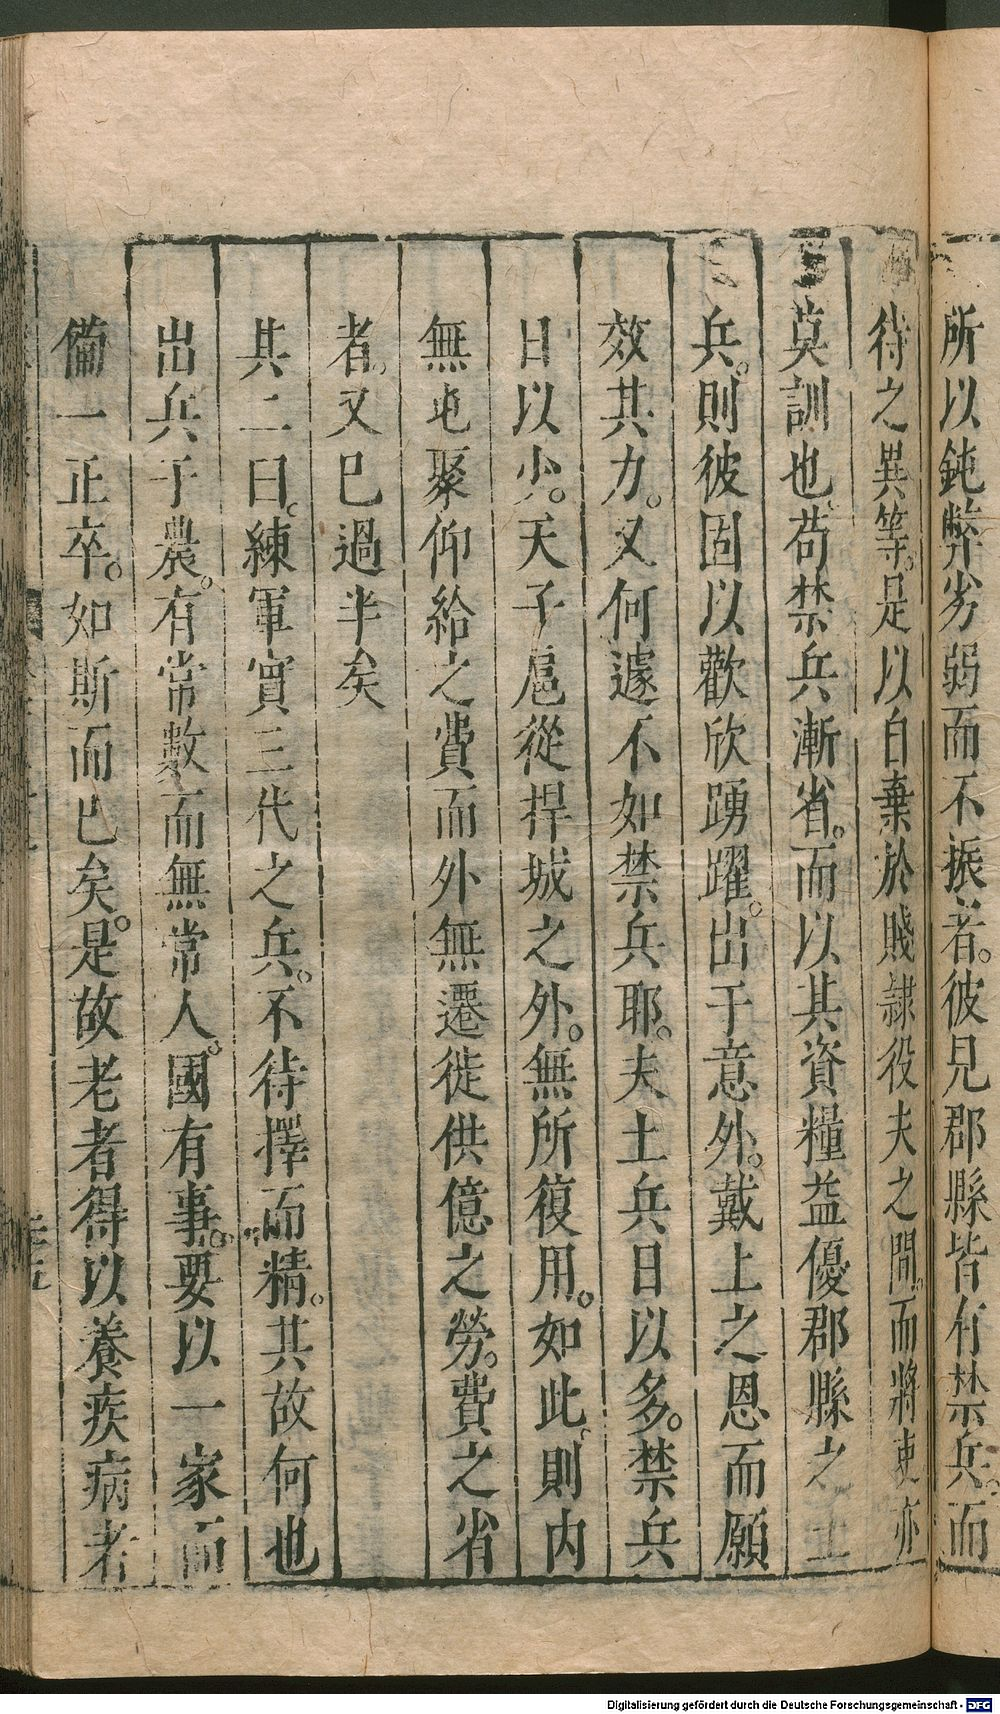 所以鈍弊劣弱而不振者。彼見郡縣皆有禁兵。而
待之異等。是以自棄於賤隷役夫之間。而將吏亦
莫訓也。苟禁兵漸省。而以其資糧益優郡縣之土
兵。則彼固以歡欣踴躍。出于意外。戴上之恩而願
效其力。又何遽不如禁兵耶。夫土兵日以多。禁兵
日以少。天子扈從捍城之外。無所復用。如此。則内
無屯聚仰給之費。而外無遷徙供億之勞。費之省
者。又已過半矣
其二曰。練軍實三代之兵。不待擇而精。其故何也
出兵于農。有常數而無常人。國有事。要以一家而
備一正卒。如斯而已矣。是故老者得以養疾病者
Digitalisierung gefördert durch die Deutsche Forschungsgemeinschaft - DFG